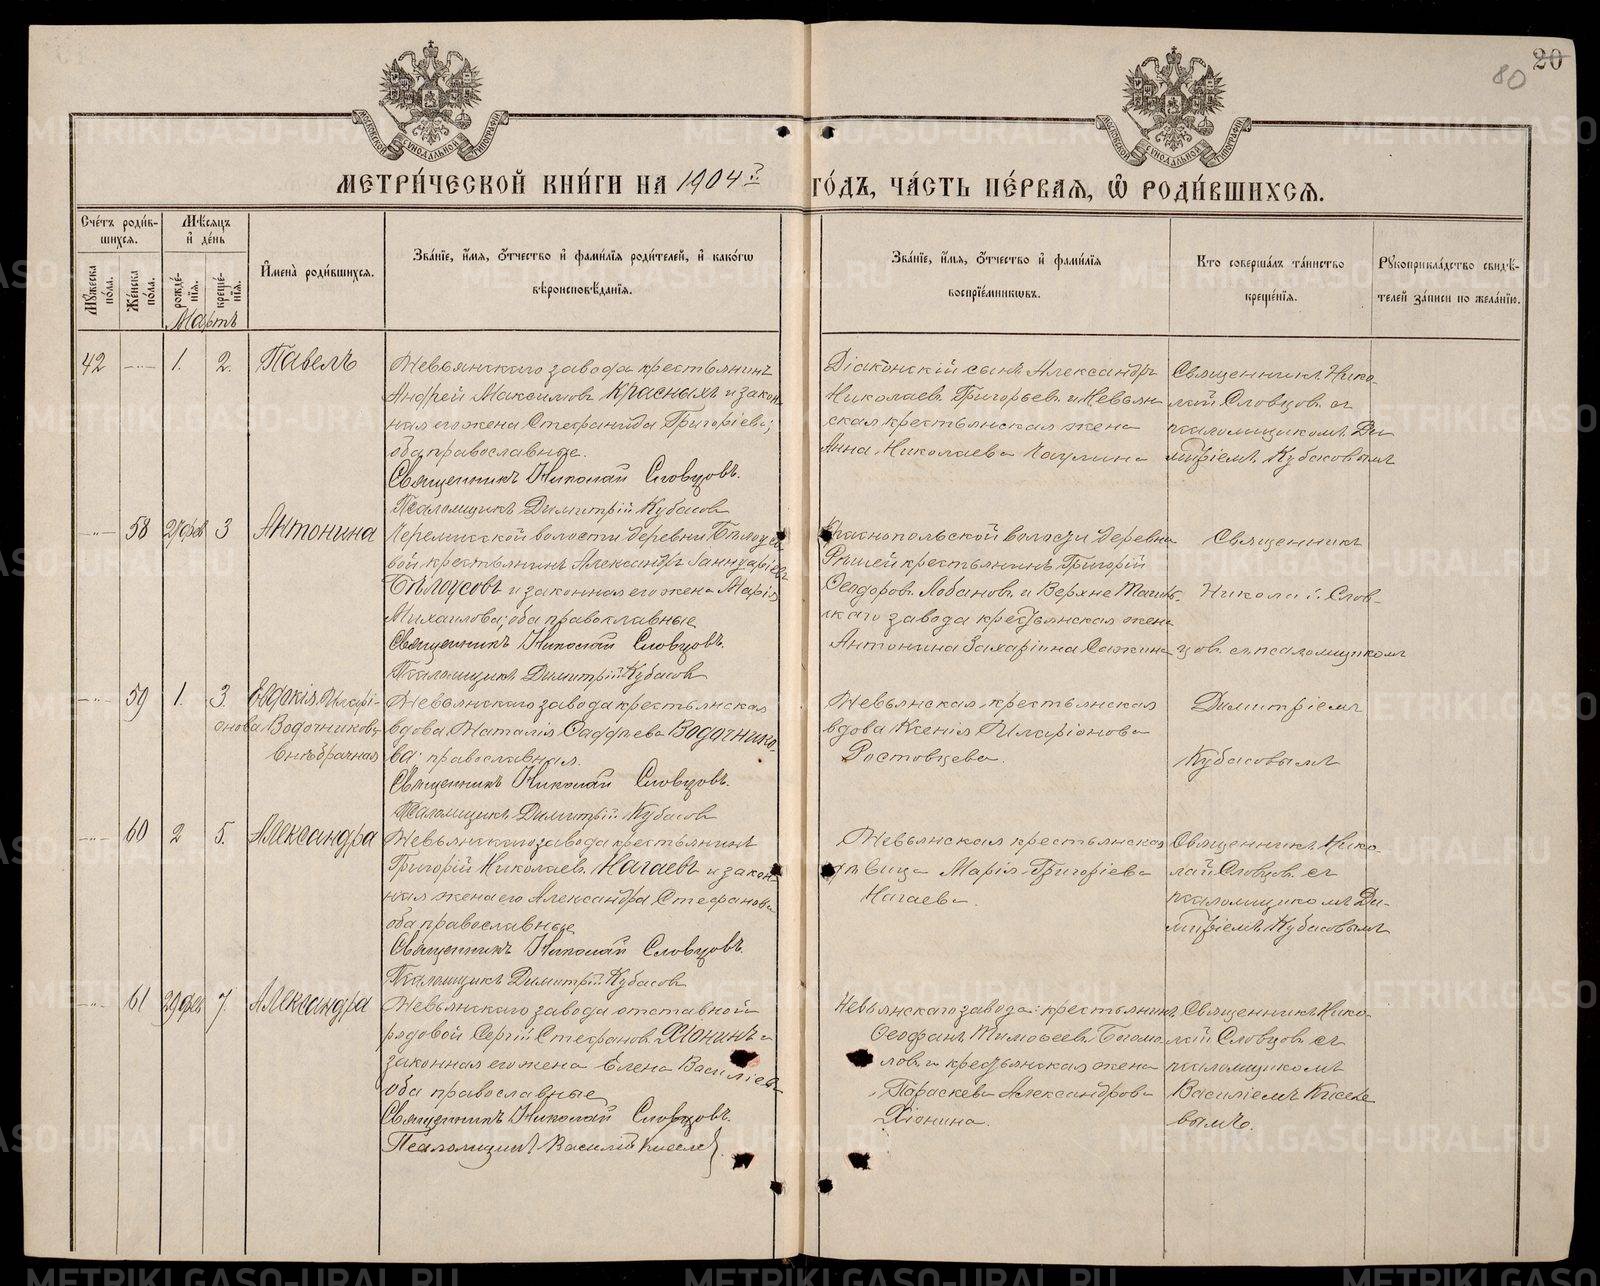 80
20
МЕТРИ́ЧЕСКОЙ КНИ́ГИ НА 1904й
ГО́ДЪ, ЧА́СТЬ ПЕ́РВАЯ, Ѽ РОДИ́ВШИХСЯ.
Сче́тъ роди́в-
шихся.
Мꙋ́жеска по́ла.
Же́нска по́ла.
Мѣ́сяцъ
и҆ де́нь
рожде́-
нїя.
креще́-
нїя.
И҆мена̀ роди́вшихся.
Зва́нїе, и҆́мя, ѻ҆́тчество и҆ фами́лїя роди́телей, и҆ како́гѡ
вѣроисповѣ́данїя.
Зва́нїе, и҆́мя, ѻ҆́тчество и҆ фами́лїя
воспрїе́мникѡвъ.
Кто соверша́лъ та́инство
креще́нїя.
Рꙋкоприкла́дство свидѣ́-
телей за́писи по жела́нїю.
Мартъ
42
1.
2.
Павелъ
Невьянскаго завода крестьянинъ
Андрей Максимовъ Красныхъ и закон-
ная его жена Стефанида Григоріева;
оба православные.
Священникъ Николай Словцовъ.
Псаломщикъ Димитрій Кубасовъ
Діаконскій сынъ Александръ
Николаевъ Григорьевъ и Невьян-
ская крестьянская жена
Анна Николаева
Священникъ Нико-
лай Словцовъ съ
псаломщикомъ Ди-
митріемъ Кубасовымъ
58
29 фев
3
Антонина
волости деревни
крестьянинъ Александръ
Бѣлоусовъ и законная его жена Марія
Михаилова; оба православные
Священникъ Николай Словцовъ.
Псаломщикъ Димитрій Кубасовъ
Краснопольской волости деревни
крестьянинъ Григорій
Ѳеодоровъ Лобановъ и Верхне Тагиль-
скаго завода крестьянская жена
Антонина Захаріина Сажина
Священникъ
Николай Слов-
цовъ съ псаломщикомъ
59
1.
3.
Евдокія Иларі-
онова Водочникова
внѣбрачная
Невьянскаго завода крестьянская
вдова Наталія Ѳаддѣева Водочнико-
ва; православная.
Священникъ Николай Словцовъ.
Псаломщикъ Димитрій Кубасовъ
Невьянская крестьянская
вдова Ксенія Иларіонова
Ростовцева.
Димитріемъ
Кубасовымъ
60
2
5.
Александра
Невьянскаго завода крестьянинъ
Григорій Николаевъ Нагаевъ и закон-
ная жена его Александра Стефанова
оба православные
Священникъ Николай Словцовъ.
Псаломщикъ Димитрій Кубасовъ
Невьянская крестьянская
дѣвица Марія Григоріева
Нагаева.
Священникъ Нико-
лай Словцовъ съ
псаломщикомъ Ди-
митріемъ Кубасовымъ
61
29 фев
7.
Александра
Невьянскаго завода отставной
рядовой Сергій Стефановъ Хіонинъ и
законная его жена Елена Василіева
оба православные
Священникъ Николай Словцовъ.
Псаломщикъ Василій
Невьянскаго завода: крестьянинъ
Ѳеофанъ Тимоѳеевъ Богомо-
ловъ и крестьянская жена
Параскева Александрова
Хіонина.
Священникъ Нико-
лай Словцовъ съ
псаломщикомъ
Василіемъ Киселе-
вымъ.